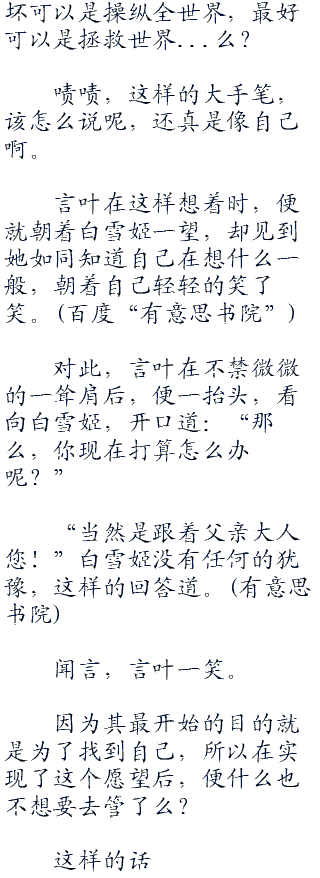 坏可以是操纵全世界，最好
可以是拯救世界...么？
啧啧，这样的大手笔，
该怎么说呢，还真是像自己
啊。
言叶在这样想着时，便
就朝着白雪姬一望，却见到
她如同知道自己在想什么一
般，朝着自己轻轻的笑了
笑。(百度“有意思书院”)
对此，言叶在不禁微微
的一耸肩后，便一抬头，看
向白雪姬，开口道：“那
么，你现在打算怎么办
呢？”
“当然是跟着父亲大人
您！”白雪姬没有任何的犹
豫，这样的回答道。(有意思
书院)
闻言，言叶一笑。
因为其最开始的目的就
是为了找到自己，所以在实
现了这个愿望后，便什么也
不想要去管了么？
这样的话